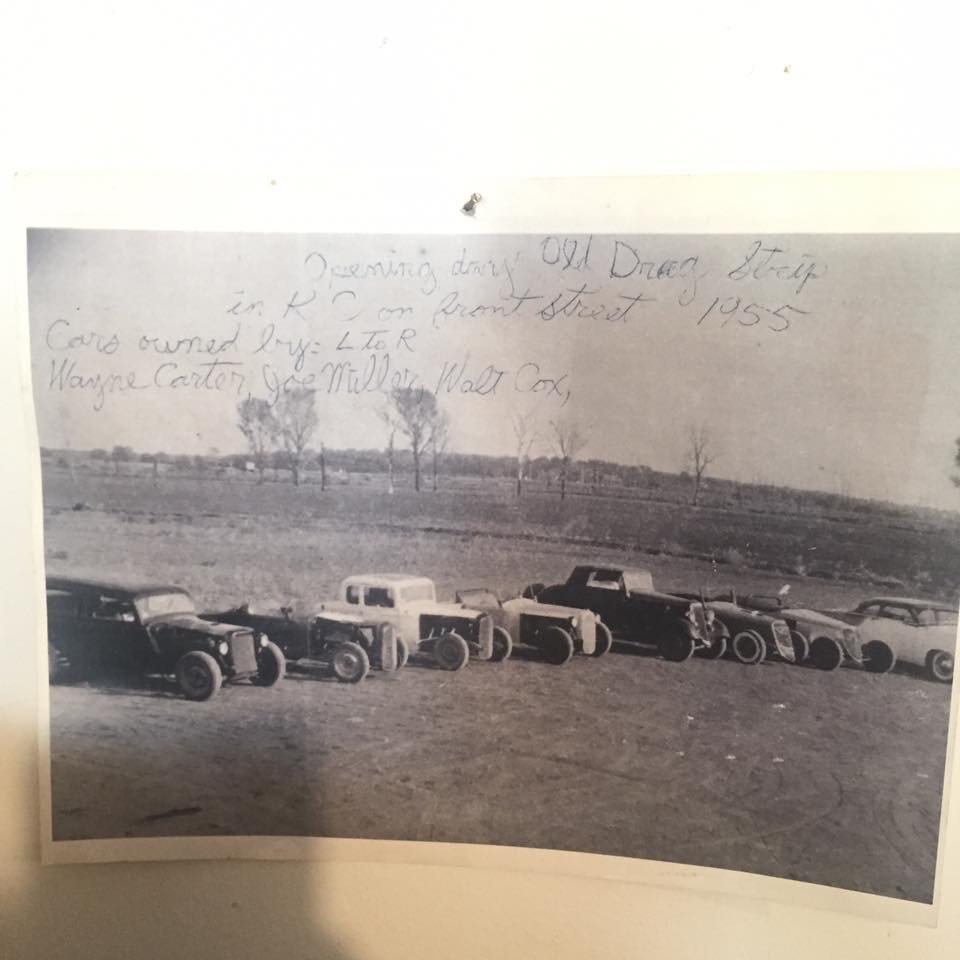 Opening day Old Drag Strip
in K C on front Street 1955
Cars owned by: L to R
Wayne Carter, Joe Miller, Walt Cox,